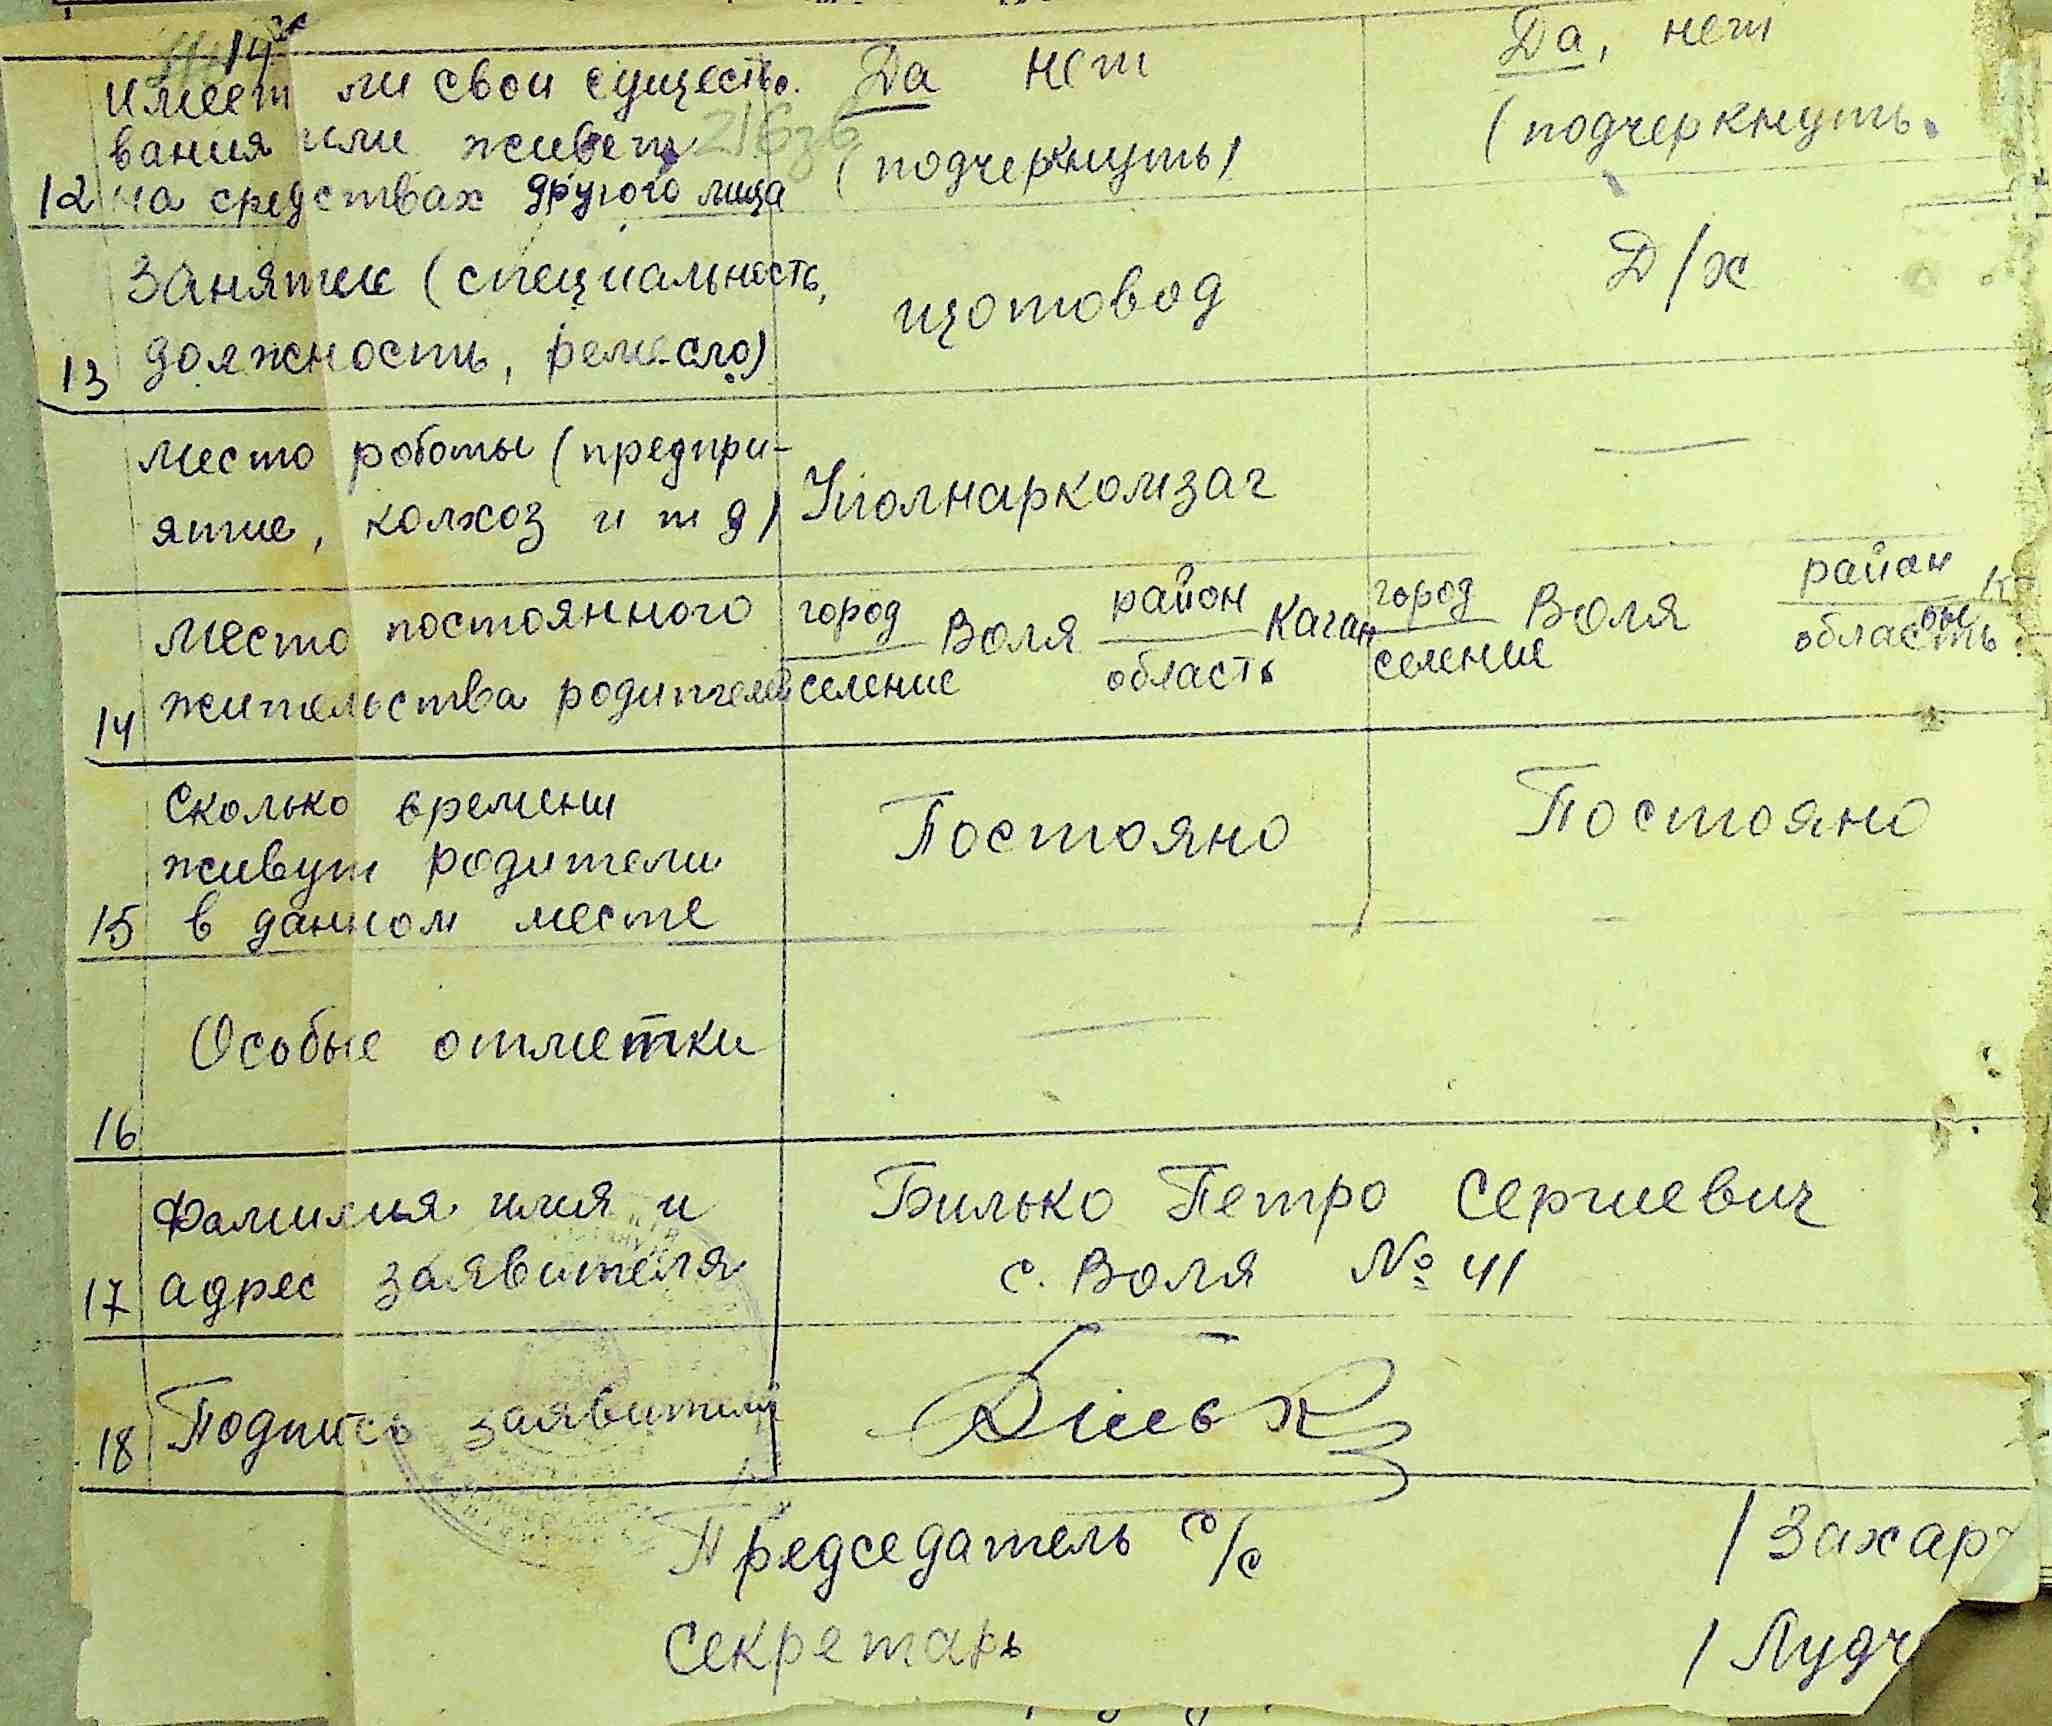 Имеет ли свои существо- Да нет Да, нет
вания или живет (подчеркнуть) (подчеркнуть
12 на средствах другого лица
Занятие (специальность, щотовод Д/х
13 должность, ремесло)
Место роботы (предпри- —
ятие, колхоз и т д) Уполнаркомзаг
Место постоянного город Воля район Каган город Воля район К
14 жительства родителей селение область селение область
Сколько времени Постояно Постояно
живут родители
15 в данном месте
Особые отметки —
16
Фамилия имя и Билько Петро Сергиевич
17 адрес заявителя с. Воля № 41
18 Подпись заявителя Білько
Председатель с/с / Захар
Секретарь / Лудч